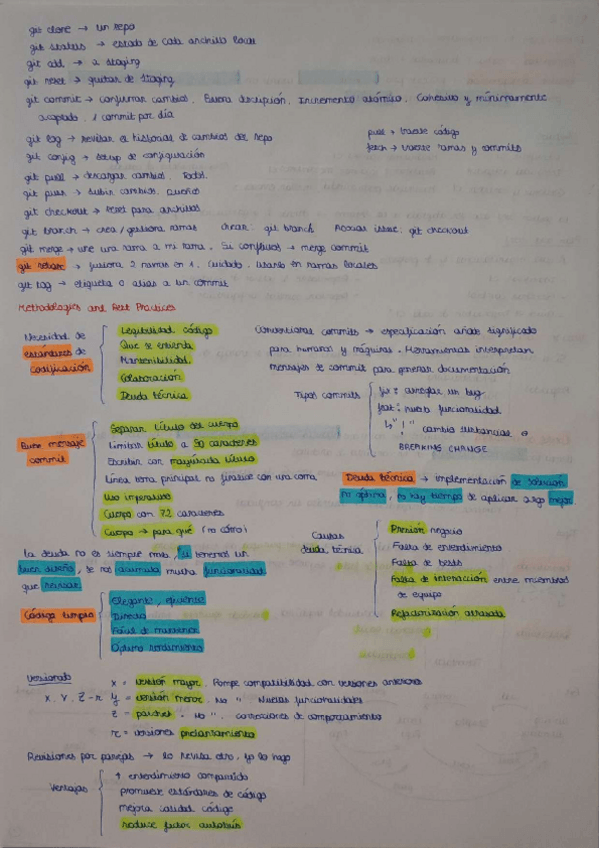 git clone → un repo
git status → estado de cada archivo local
git add → a staging
git reset → quitar de staging
git commit → confirmar cambios. Buena descripción. Incremento atómico. Cohesivo y mínimamente
acoplado. 1 commit por día
git log → revisar el historial de cambios del repo
pull → traerse código
git config → setup de configuración
fetch → traerse ramas y commits
git pull → descargar cambios. Todos.
git push → subir cambios.
git checkout → reset para archivos
git branch → crea/gestiona ramas crear: git branch issue: git checkout
git merge → une una rama a mi rama. Si conflictos → merge commit
git rebase → fusiona 2 ramas en 1. Cuidado, usarlo en ramas locales
git tag → etiqueta o alias a un commit
Methodologies and Best Practices
Necesidad de
estándares de
codificación
Legibilidad código
Que se entienda
Mantenibilidad.
Colaboración
Deuda técnica
Conventional commits → especificación añade significado
para humanos y máquinas. Herramientas interpretan
mensajes de commit para generar documentación
Tipos commits
fix: arreglar un bug
feat: nueva funcionalidad
↳ "!" cambio sustancial o
BREAKING CHANGE
Buen mensaje
commit
Separar título del cuerpo
Limitar título a 50 caracteres
Escribir con mayúscula título
Línea tema principal no finalice con una coma
Uso imperativo
Cuerpo con 72 caracteres
Cuerpo → para qué (no cómo)
Deuda técnica → implementación de solución
no óptima, no hay tiempo de aplicar algo mejor
La deuda no es siempre mala, si tenemos un
buen diseño, se nos acumula mucha funcionalidad
que revisar.
Causas
deuda técnica
Presión negocio
Falta de entendimiento
Falta de tests
Falta de interacción entre miembros
de equipo
Refactorización atrasada
Código limpio
Elegante, eficiente
Directo
Fácil de mantener
Óptimo rendimiento
Versionado
X. Y. Z-r
x = versión mayor. Rompe compatibilidad con versiones anteriores
y = versión menor. No ". Nuevas funcionalidades
z = parches. No ". correcciones de comportamiento
r = versiones prelanzamiento
Revisiones por parejas → lo revisa otro, yo lo hago
Ventajas
↑ entendimiento compartido
promueve estándares de código
mejora calidad código
reduce